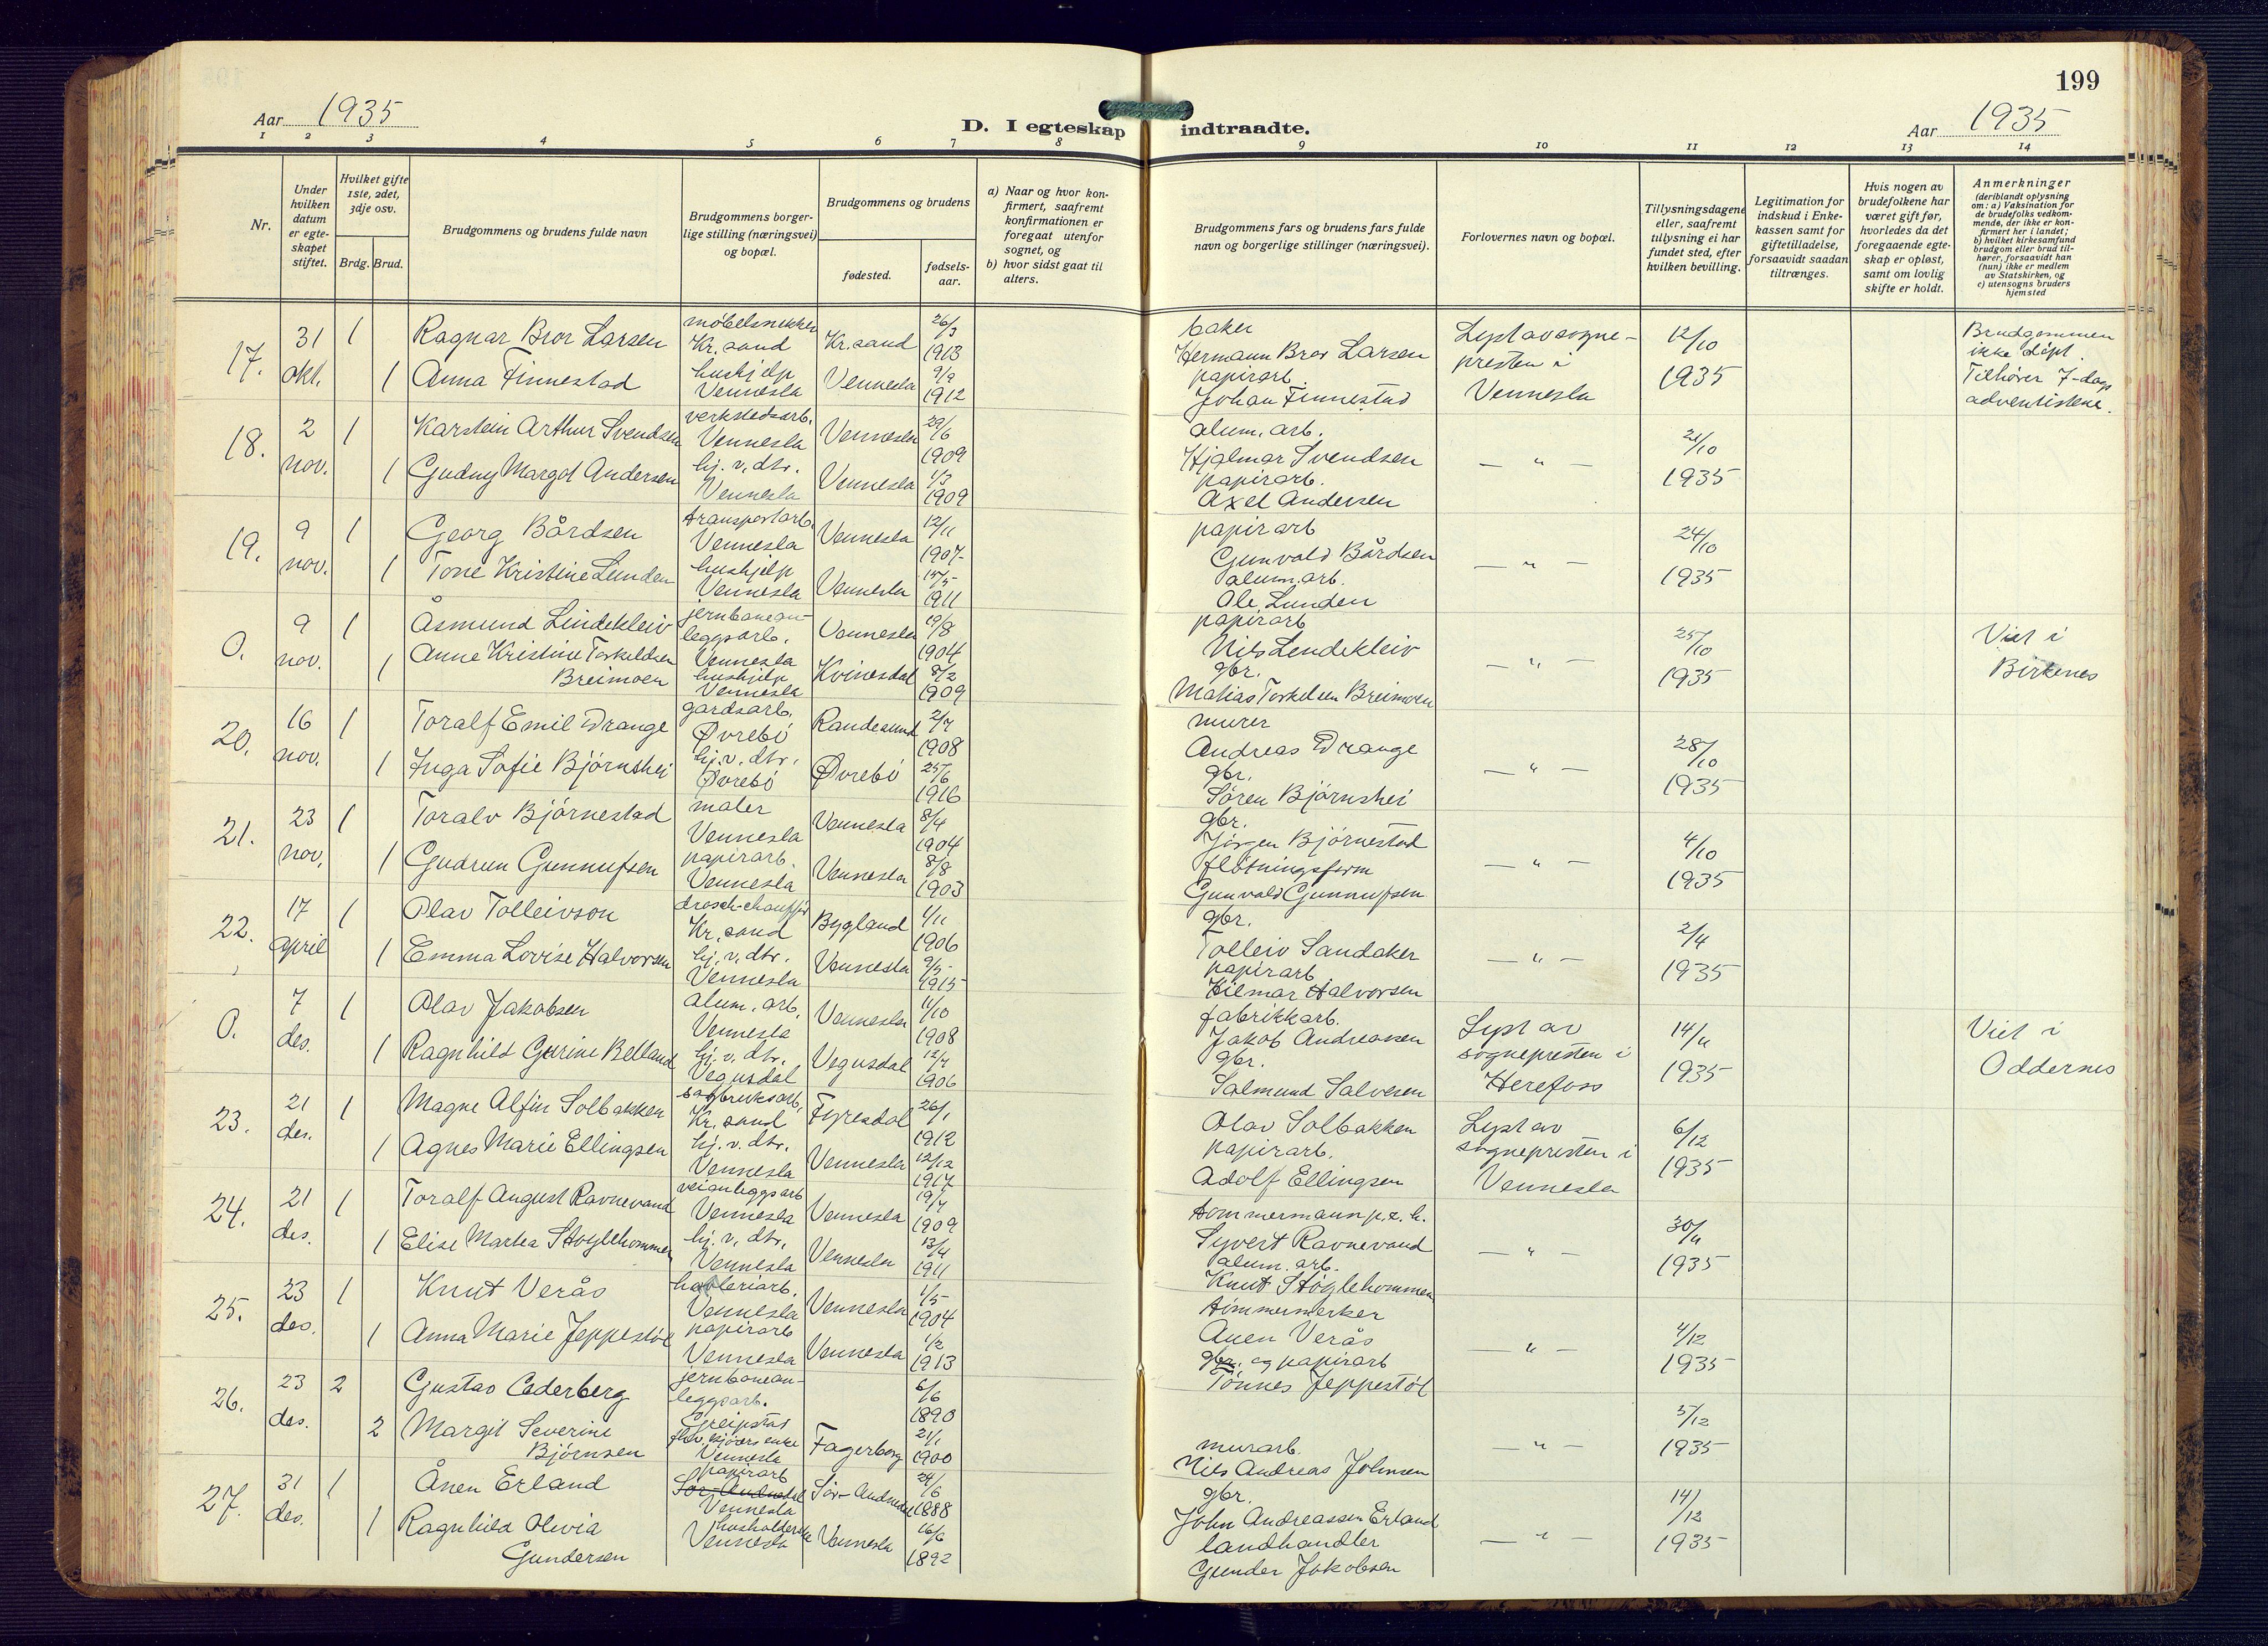 199
Aar 1935
D. I egteskap indtraadte.
Aar 1935
1 2 3 4 5 6 7 8 9 10 11 12 13 14
Nr.
Under hvilken datum er egteskapet stiftet.
Hvilket gifte 1ste, 2det, 3dje osv.
Brdg. Brud.
Brudgommens og brudens fulde navn
Brudgommens borgerlige stilling (næringsvei) og bopæl.
Brudgommens og brudens
fødested.
fødselsaar.
a) Naar og hvor konfirmert, saafremt konfirmationen er foregaat utenfor sognet, og
b) hvor sidst gaat til alters.
Brudgommens fars og brudens fars fulde navn og borgerlige stillinger (næringsvei).
Forlovernes navn og bopæl.
Tillysningsdagene eller, saafremt tillysning ei har fundet sted, efter hvilken bevilling.
Legitimation for indskud i Enkekassen samt for giftetilladelse, forsaavidt saadan tiltrænges.
Hvis nogen av brudefolkene har været gift før, hvorledes da det foregaaende egteskap er opløst, samt om lovlig skifte er holdt.
Anmerkninger
(deriblandt oplysning om: a) Vaksination for de brudefolks vedkommende, der ikke er konfirmert her i landet; b) hvilket kirkesamfund brudgom eller brud tilhører, forsaavidt han (hun) ikke er medlem av Statskirken, og c) utensogns bruders hjemsted
17. 31 okt. 1 Ragnar Bror Larsen møbelsnekker Kr.sand Kr.sand 26/3 1913
1 Anna Finnestad hushjelp Vennesla Vennesla 9/9 1912
baker Hermann Bror Larsen
papirarb. Johan Finnestad
Lyst av sognepresten i Vennesla
12/10 1935
Brudgommen ikke døpt. Tilhører 7-dags adventistene.
18. 2 nov. 1 Karstein Arthur Svendsen verkstedsarb. Vennesla Vennesla 29/6 1909
1 Gudny Margot Andersen hj. v. dtr. Vennesla Vennesla 1/3 1909
alum. arb. Hjalmar Svendsen
papirarb. Axel Andersen
— " —
21/10 1935
19. 9 nov. 1 Georg Bårdsen transportarb. Vennesla Vennesla 12/11 1907
1 Tone Kristine Lunden hushjelp Vennesla Vennesla 15/5 1911
papirarb Gunvald Bårdsen
alum. arb. Ole Lunden
— " —
24/10 1935
0. 9 nov. 1 Åsmund Lindekleiv jernbaneanleggsarb. Vennesla Vennesla 19/8 1904
1 Anne Kristine Torkeldsen Breimoen hushjelp Vennesla Kvinesdal 8/2 1909
papirarb Nils Lendekleiv
gbr. Matias Torkelsen Breimoen
— " —
25/10 1935
Viet i Birkenes
20. 16 nov. 1 Toralf Emil Drange gardsarb. Øvrebö Randesund 2/7 1908
1 Inga Sofie Bjørnshei hj. v. dtr. Øvrebö Øvrebö 25/6 1916
murer Andreas Drange
gbr. Søren Bjørnshei
— " —
28/10 1935
21. 23 nov. 1 Toralv Bjørnestad maler Vennesla Vennesla 8/4 1904
1 Gudrun Gunnufsen papirarb. Vennesla Vennesla 8/8 1903
gbr. Jørgen Bjørnestad
fløtningsform Gunvald Gunnufsen
— " —
4/10 1935
22. 17 april 1 Olav Tolleivson drosch-chauffør Kr.sand Bygland 1/11 1906
1 Emma Lovise Halvorsen hj. v. dtr. Vennesla Vennesla 9/5 1915
gbr. Tolleiv Sandaker
papirarb Hilmar Halvorsen
— " —
2/4 1935
0. 7 des. 1 Olav Jakobsen alum. arb. Vennesla Vennesla 11/10 1908
1 Ragnhild Gurine Belland hj. v. dtr. Vegusdal Vegusdal 12/7 1906
fabrikkarb. Jakob Andreassen
gbr. Salmund Salvesen
Lyst av sognepresten i Herefoss
14/11 1935
Viet i Oddernes
23. 21 des. 1 Magne Alfin Solbakken sagbruksarb. Kr.sand Fyresdal 26/1 1912
1 Agnes Marie Ellingsen hj. v. dtr. Vennesla Vennesla 12/12 1917
Olav Solbakken
papirarb. Adolf Ellingsen
Lyst av sognepresten i Vennesla
6/12 1935
24. 21 des. 1 Toralf August Ravnevand veianleggsarb Vennesla Vennesla 19/7 1909
1 Elise Marta Støylehommen hj. v. dtr. Vennesla Vennesla 13/4 1911
tømmermann Syvert Ravnevand
alum. arb. Knut Støylehommen
— " —
30/11 1935
25. 23 des. 1 Knut Verås Vennesla Vennesla 1/5 1904
1 Anna Marie Jeppestøl papirarb Vennesla Vennesla 1/2 1913
tømmermerker Anen Verås
gbr. og papirarb Tønnes Jeppestøl
— " —
4/12 1935
26. 23 des. 2 Gustav Cederberg jernbaneanleggsarb. Greipstad 6/6 1890
2 Margit Severine Bjørnsen enke Vennesla Fagerberg 21/1 1900
murarb. Nils Andreas Johnsen
— " —
5/12 1935
27. 31 des. 1 Ånen Erland papirarb Sør-Audnedal Vennesla Sør-Audnedal 24/6 1888
1 Ragnhild Olivia Gundersen husholderske Vennesla Vennesla 16/6 1892
gbr. John Andreassen Erland
landhandler Gunder Jakobsen
— " —
14/12 1935